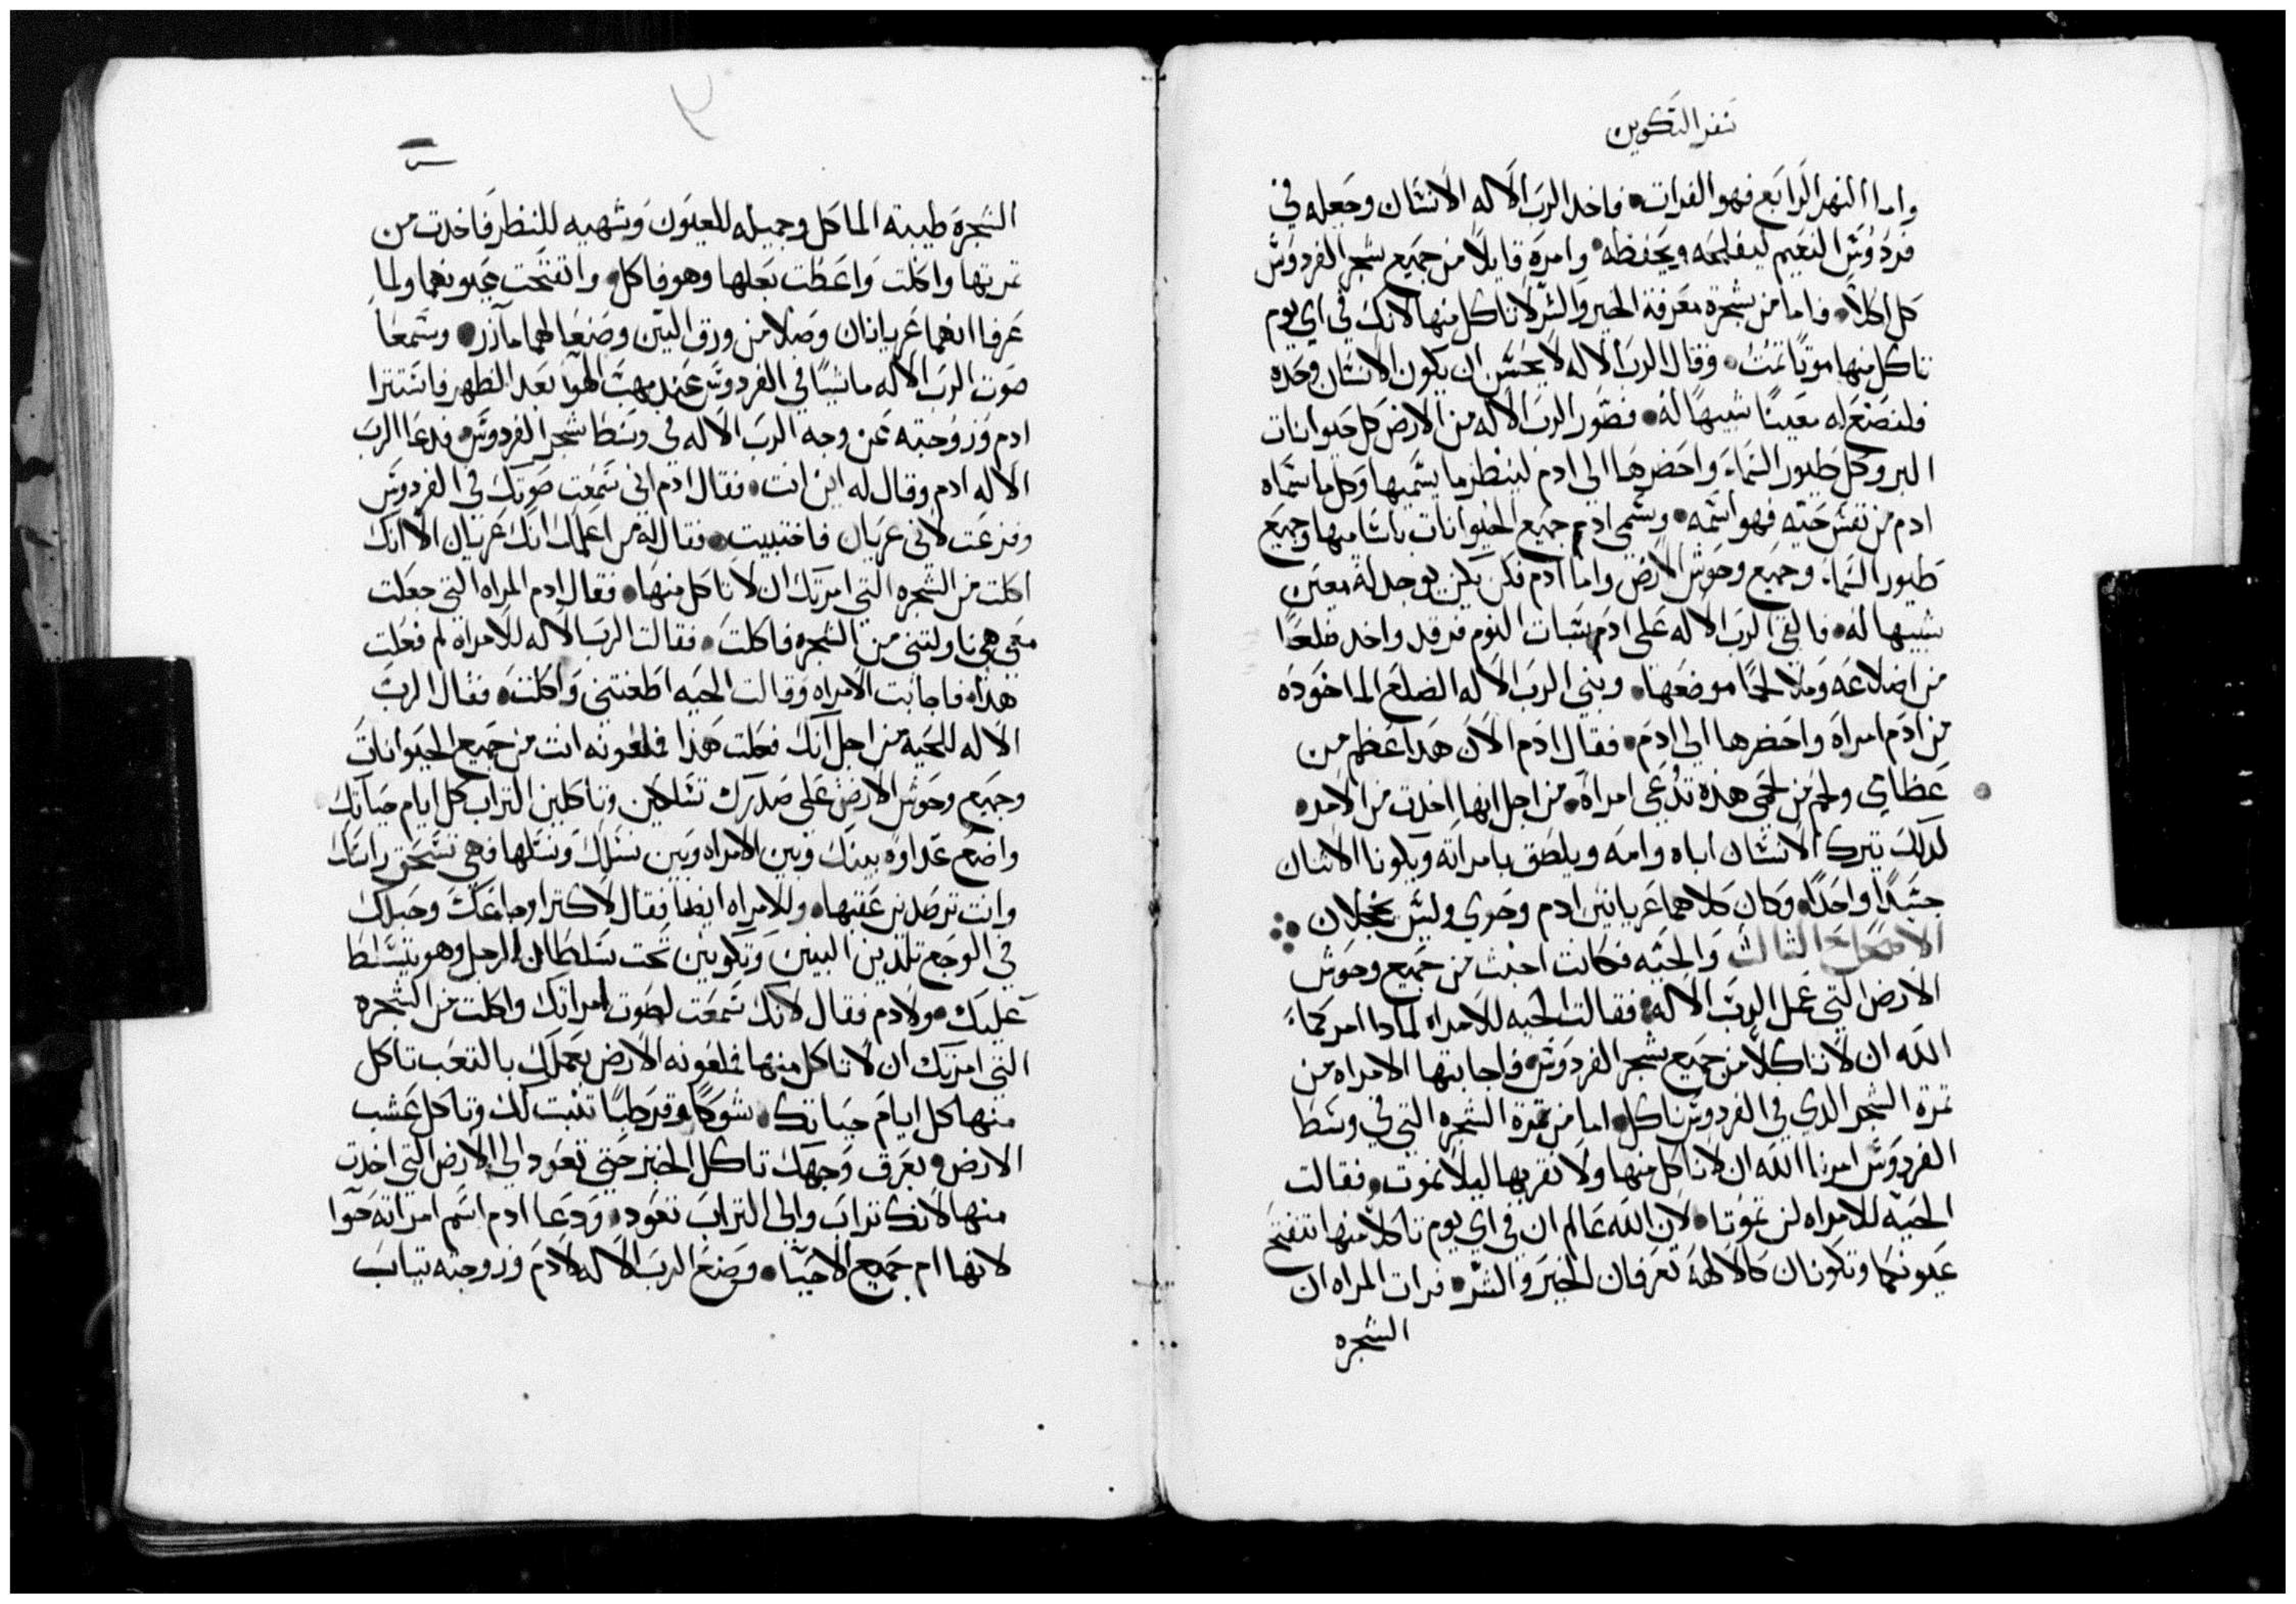 سفر التكوين
واما النهر الرابع فهو الفرات فاخد الرب الاله الانسان وجعله في
فردوس النعيم ليفلحه ويحفظه وامره قايلاً من جميع شجر الفردوس
كل اكلاً فاما من شجرة معرفة الخير والشر لا تاكل منها لانك في اي يوم
تاكل منها موتاً تمت وقال الرب الاله لا يحسن ان يكون الانسان وحده
فلنصنع له معيناً شبيهاً له فصور الرب الاله من الارض كل حيوانات
البر وكل طيور السماء واحضرها الى ادم لينظر ما يسميها وكل ما سماه
ادم من نفس حيه فهو اسمه وسمى ادم جميع الحيوانات باسامها وجميع
طيور السماء وجميع وحوش الارض واما ادم فلم يكن يوجد له معين
شبيها له فالقى الرب الاله على ادم سبات النوم فرقد واخد ضلعاً
من اضلاعه وملا لحماً موضعها وبني الرب الاله الضلع الماخوده
من ادم امراه واحضرها الى ادم فقال ادم الان هدا عظم من
عظامي ولحم من لحمي هذه تدعى امراه من اجل انها اخدت من الامره
لدلك يترك الانسان اباه وامه ويلصق بامراته ويكونا الاتنان
جسداً واحداً وكان كلاهما عريانين ادم وحوى وليس يخجلان
الاصحاح الثالث والحيه فكانت اخبث من جميع وحوش
الارض التي عمل الرب الاله فقالت الحيه للامراه لمادا امركما
الله ان لا تاكلا من جميع شجر الفردوس فاجابتها الامراه من
تمرة الشجر الدي في الفردوس ناكل اما من تمرة الشجره التي في وسط
الفردوس امرنا الله ان لا ناكل منها ولا نقربها ليلا نموت فقالت
الحيه للامراه لن تموتا لان الله عالم ان في اي يوم تاكلا منها تتفتح
عيونكما وتكونان كالالهة تعرفان الخير والشر فرات المراه ان
الشجره
الشجره طيبة الماكل وجميله للعيون وشهيه للنظر فاخدت من
تمرتها واكلت واعطت بعلها وهو فاكل وانفتحت عيونهما ولما
عرفا انهما عريانان وصلا من ورق التين وصنعا لهما مآزر وسمعا
صوت الرب الاله ماشياً في الفردوس عند مهب الهوا بعد الظهر فاستترا
ادم وزوجته عن وجه الرب الاله في وسط شجر الفردوس فدعا الرب
الاله ادم وقال له اين انت فقال ادم اني سمعت صوتك في الفردوس
وفزعت لاني عريان فاختبيت فقال له من اعلمك انك عريان الا انك
اكلت من الشجره التي امرتك ان لا تاكل منها فقال ادم المراه التي جعلت
معي هي ناولتني من الشجره فاكلت فقالت الرب الاله للامراه لم فعلت
هدا فاجابت الامراه وقالت الحيه اطغتني واكلت فقال الرب
الاله للحية من اجل انك فعلت هذا فلعونه انت من جميع الحيوانات
وجميع وحوش الارض على صدرك تسلكين وتاكلين التراب كل ايام حياتك
واضع عداوه بينك وبين الامراه وبين نسلك ونسلها فهي تسحق راسك
وانت ترصدين عقبها وللامراه ايضا فقال لاكترا اوجاعك وحبلك
في الوجع تلدين البنين وتكونين تحت سلطان الرجل وهو يتسلط
عليك ولادم فقال لانك سمعت لصوت امراتك واكلت من الشجره
التي امرتك ان لا تاكل منها فلعونه الارض بعملك بالتعب تاكل
منها كل ايام حياتك شوكاً وقرطباً تنبت لك وتاكل عشب
الارض وبعرق وجهك تاكل الخبز حتى تعود الى الارض التي اخدت
منها لانك تراب والى التراب تعود ودعا ادم اسم امراته حوا
لانها ام جميع الاحيا وصنع الرب الاله لادم وزوجته تياب